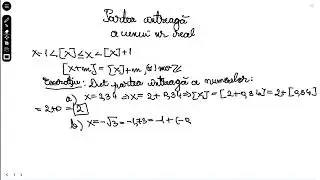 Partea întreagă
a unui nr real
x-1<[x]≤x<[x]+1
[x+m]=[x]+m, (∀) m∈ℤ
Exercițiu: Det partea întreagă a numerelor:
a) x=2,34 ⇒ x=2+0,34 ⇒ [x]=[2+0,34]=2+[0,34]
=2+0=2
b) x=-√3=-1,73=-1+(-0,